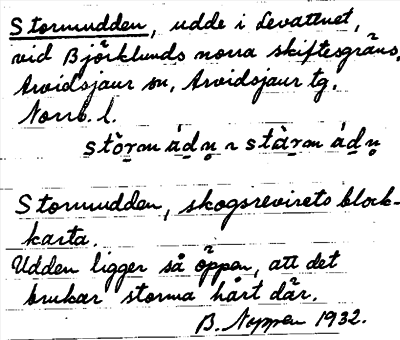 Stormudden, udde i Levattnet,
vid Björklunds norra skiftesgräns,
Arvidsjaur sn, Arvidsjaur tg,
Norrb. l.
stòrm ádn ~ stàrm ádn
Stormudden, skogsrevirets block-
karta.
Udden ligger så öppen, att det
brukar storma hårt där.
B. Noppen 1932.